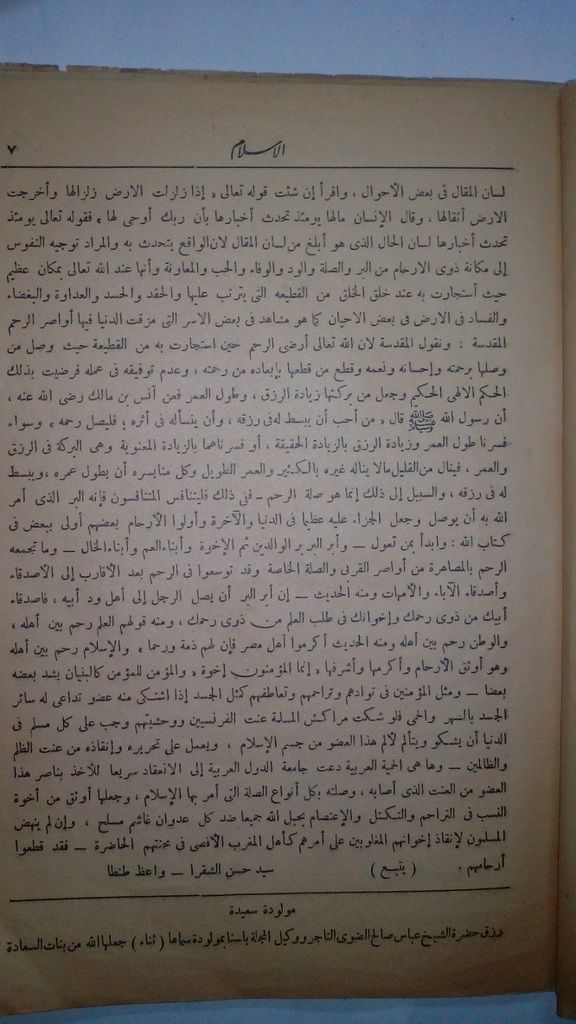 الإسلام
٧
لسان المقال فى بعض الأحوال ، واقرأ إن شئت قوله تعالى « إذا زلزلت الارض زلزالها وأخرجت
الارض أثقالها ، وقال الإنسان مالها يومئذ تحدث أخبارها بأن ربك أوحى لها » فقوله تعالى يومئذ
تحدث أخبارها لسان الحال الذى هو أبلغ من لسان المقال لان الواقع يتحدث به والمراد توجيه النفوس
إلى مكانة ذوى الارحام من البر والصلة والود والوفاء والحب والمعاونة وأنها عند الله تعالى بمكان عظيم
حيث أستجارت به عند خلق الخلق من القطيعه التى يترتب عليها والحقد والحسد والعداوة والبغضاء
والفساد فى الارض فى بعض الاحيان كما هو مشاهد فى بعض الاسر التى مزقت الدنيا فيها أواصر الرحم
المقدسة : ونقول المقدسة لان الله تعالى أرضى الرحم حين استجارت به من القطيعة حيث وصل من
وصلها برحمته وإحسانه ونعمه وقطع من قطعها بإبعاده من رحمته ، وعدم توفيقه فى عمله فرضيت بذلك
الحكم الالهى الحكيم وجعل من بركتها زيادة الرزق ، وطول العمر فعن أنس بن مالك رضى الله عنه ،
أن رسول الله ﷺ قال « من أحب أن يبسط له فى رزقه ، وأن ينسأله فى أثره ؛ فليصل رحمه » وسواء
فسرنا طول العمر وزيادة الرزق بالزيادة الحقيقة ، أو فسرناهما بالزيادة المعنوية وهى البركة فى الرزق
والعمر ، فينال من القليل مالا يناله غيره بالكثير والعمر الطويل وكل منا يسره أن يطول عمره ، ويبسط
له فى رزقه ، والسبيل إلى ذلك إنما هو صلة الرحم ـ ففى ذلك فليتنافس المتنافسون فإنه البر الذى أمر
الله به أن يوصل وجعل الجزاء عليه عظيما فى الدنيا والآخرة وأولوا الأرحام بعضهم أولى ببعض فى
كتاب الله : وابدأ بمن تعول ــ وأبر البر بر الوالدين ثم الإخوة وأبناء العم وأبناء الخال ــ وما تجمعه
الرحم بالمصاهرة من أواصر القربى والصلة الخاصة وقد توسعوا فى الرحم بعد الأقارب إلى الأصدقاء
وأصدقاء الآباء والأمهات ومنه الحديث ــ إن أبر البر أن يصل الرجل إلى أهل ود أبيه ، فاصدقاء
أبيك من ذوى رحمك وإخوانك فى طلب العلم من ذوى رحمك ، ومنه قولهم العلم رحم بين أهله ،
والوطن رحم بين أهله ومنه الحديث أكرموا أهل مصر فإن لهم ذمة ورحما ، والإسلام رحم بين أهله
وهو أوثق الأرحام وأكرمها وأشرفها « إنما المؤمنون إخوة » والمؤمن للمؤمن كالبنيان يشد بعضه
بعضا ــ ومثل المؤمنين فى توادهم وتراحمهم وتعاطفهم كمثل الجسد إذا اشتكى منه عضو تداعى له سائر
الجسد بالسهر والحمى فلو شكت مراكش المسلمة عنت الفرنسيين ووحشيتهم وجب على كل مسلم فى
الدنيا أن يشكو ويتألم لألم هذا العضو من جسم الإسلام ، ويعمل على تحريره وإنقاذه من عنت الظلم
والظالمين ــ وها هى الحمية العربية دعت جامعة الدول العربية إلى الانعقاد سريعا للأخذ بناصر هذا
العضو من العنت الذى أصابه ، وصلته بكل أنواع الصلة التى أمر بها الإسلام ، وجعلها أوثق من أخوة
النسب فى التراحم والتكتل والإعتصام بحبل الله جميعا ضد كل عدوان غاشم مسلح ، وإن لم ينهض
المسلمون لإنقاذ إخوانهم المغلوبين على أمرهم كأهل المغرب الأقصى فى محنتهم الحاضرة ــ فقد قطعوا
أرحامهم . ( يتبع ) سيد حسن الشقرا ــ واعظ طنطا
مولودة سعيدة
رزق حضرة الشيخ عباس صالح الضوى التاجر ووكيل المجلة باسنا بمولودة سماها ( ثناء ) جعلها الله من بنات السعادة